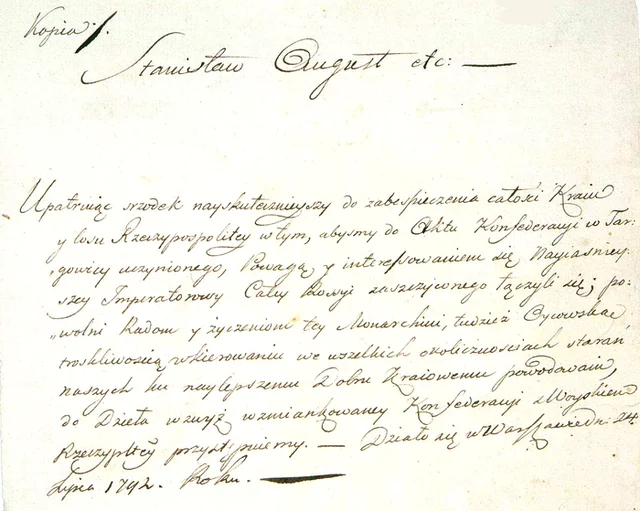 Kopia
Stanisław August etc: —
Upatruiąc srzodek nayskutecznieyszy do zabespieczenia całości Kraiu
y losu Rzeczypospolitey w tym, abyśmy do Aktu Konfederacyi w Tar-
„gowicy uczynionego, Powagą y interessowaniem się Nayiaśniey-
szey Imperatorowy Całey Rossyi zaszczyconego łączyli się; po-
„wolni Radom y życzeniom tey Monarchini, tudzież Oycowską
troskliwością wkierowaniu we wszelkich okolicznościach starań
naszych ku naylepszemu Dobru Kraiowemu powodowani,
do Dzieła wzwyż wzmiankowaney Konfederacyi z Woyskiem
Rzeczypltey przystępuiemy. — Działo się w Warszawie dn: 24.
Lipca 1792. Roku. —